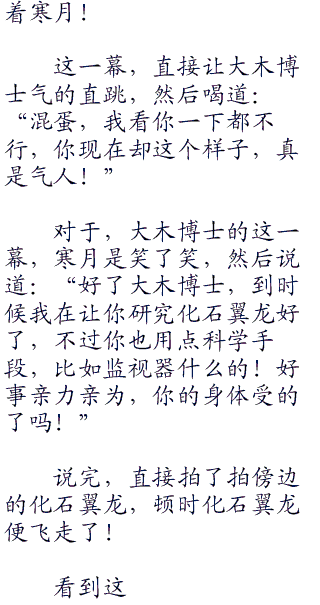 着寒月！
这一幕，直接让大木博
士气的直跳，然后喝道：
“混蛋，我看你一下都不
行，你现在却这个样子，真
是气人！”
对于，大木博士的这一
幕，寒月是笑了笑，然后说
道：“好了大木博士，到时
候我在让你研究化石翼龙好
了，不过你也用点科学手
段，比如监视器什么的！好
事亲力亲为，你的身体受的
了吗！”
说完，直接拍了拍傍边
的化石翼龙，顿时化石翼龙
便飞走了！
看到这